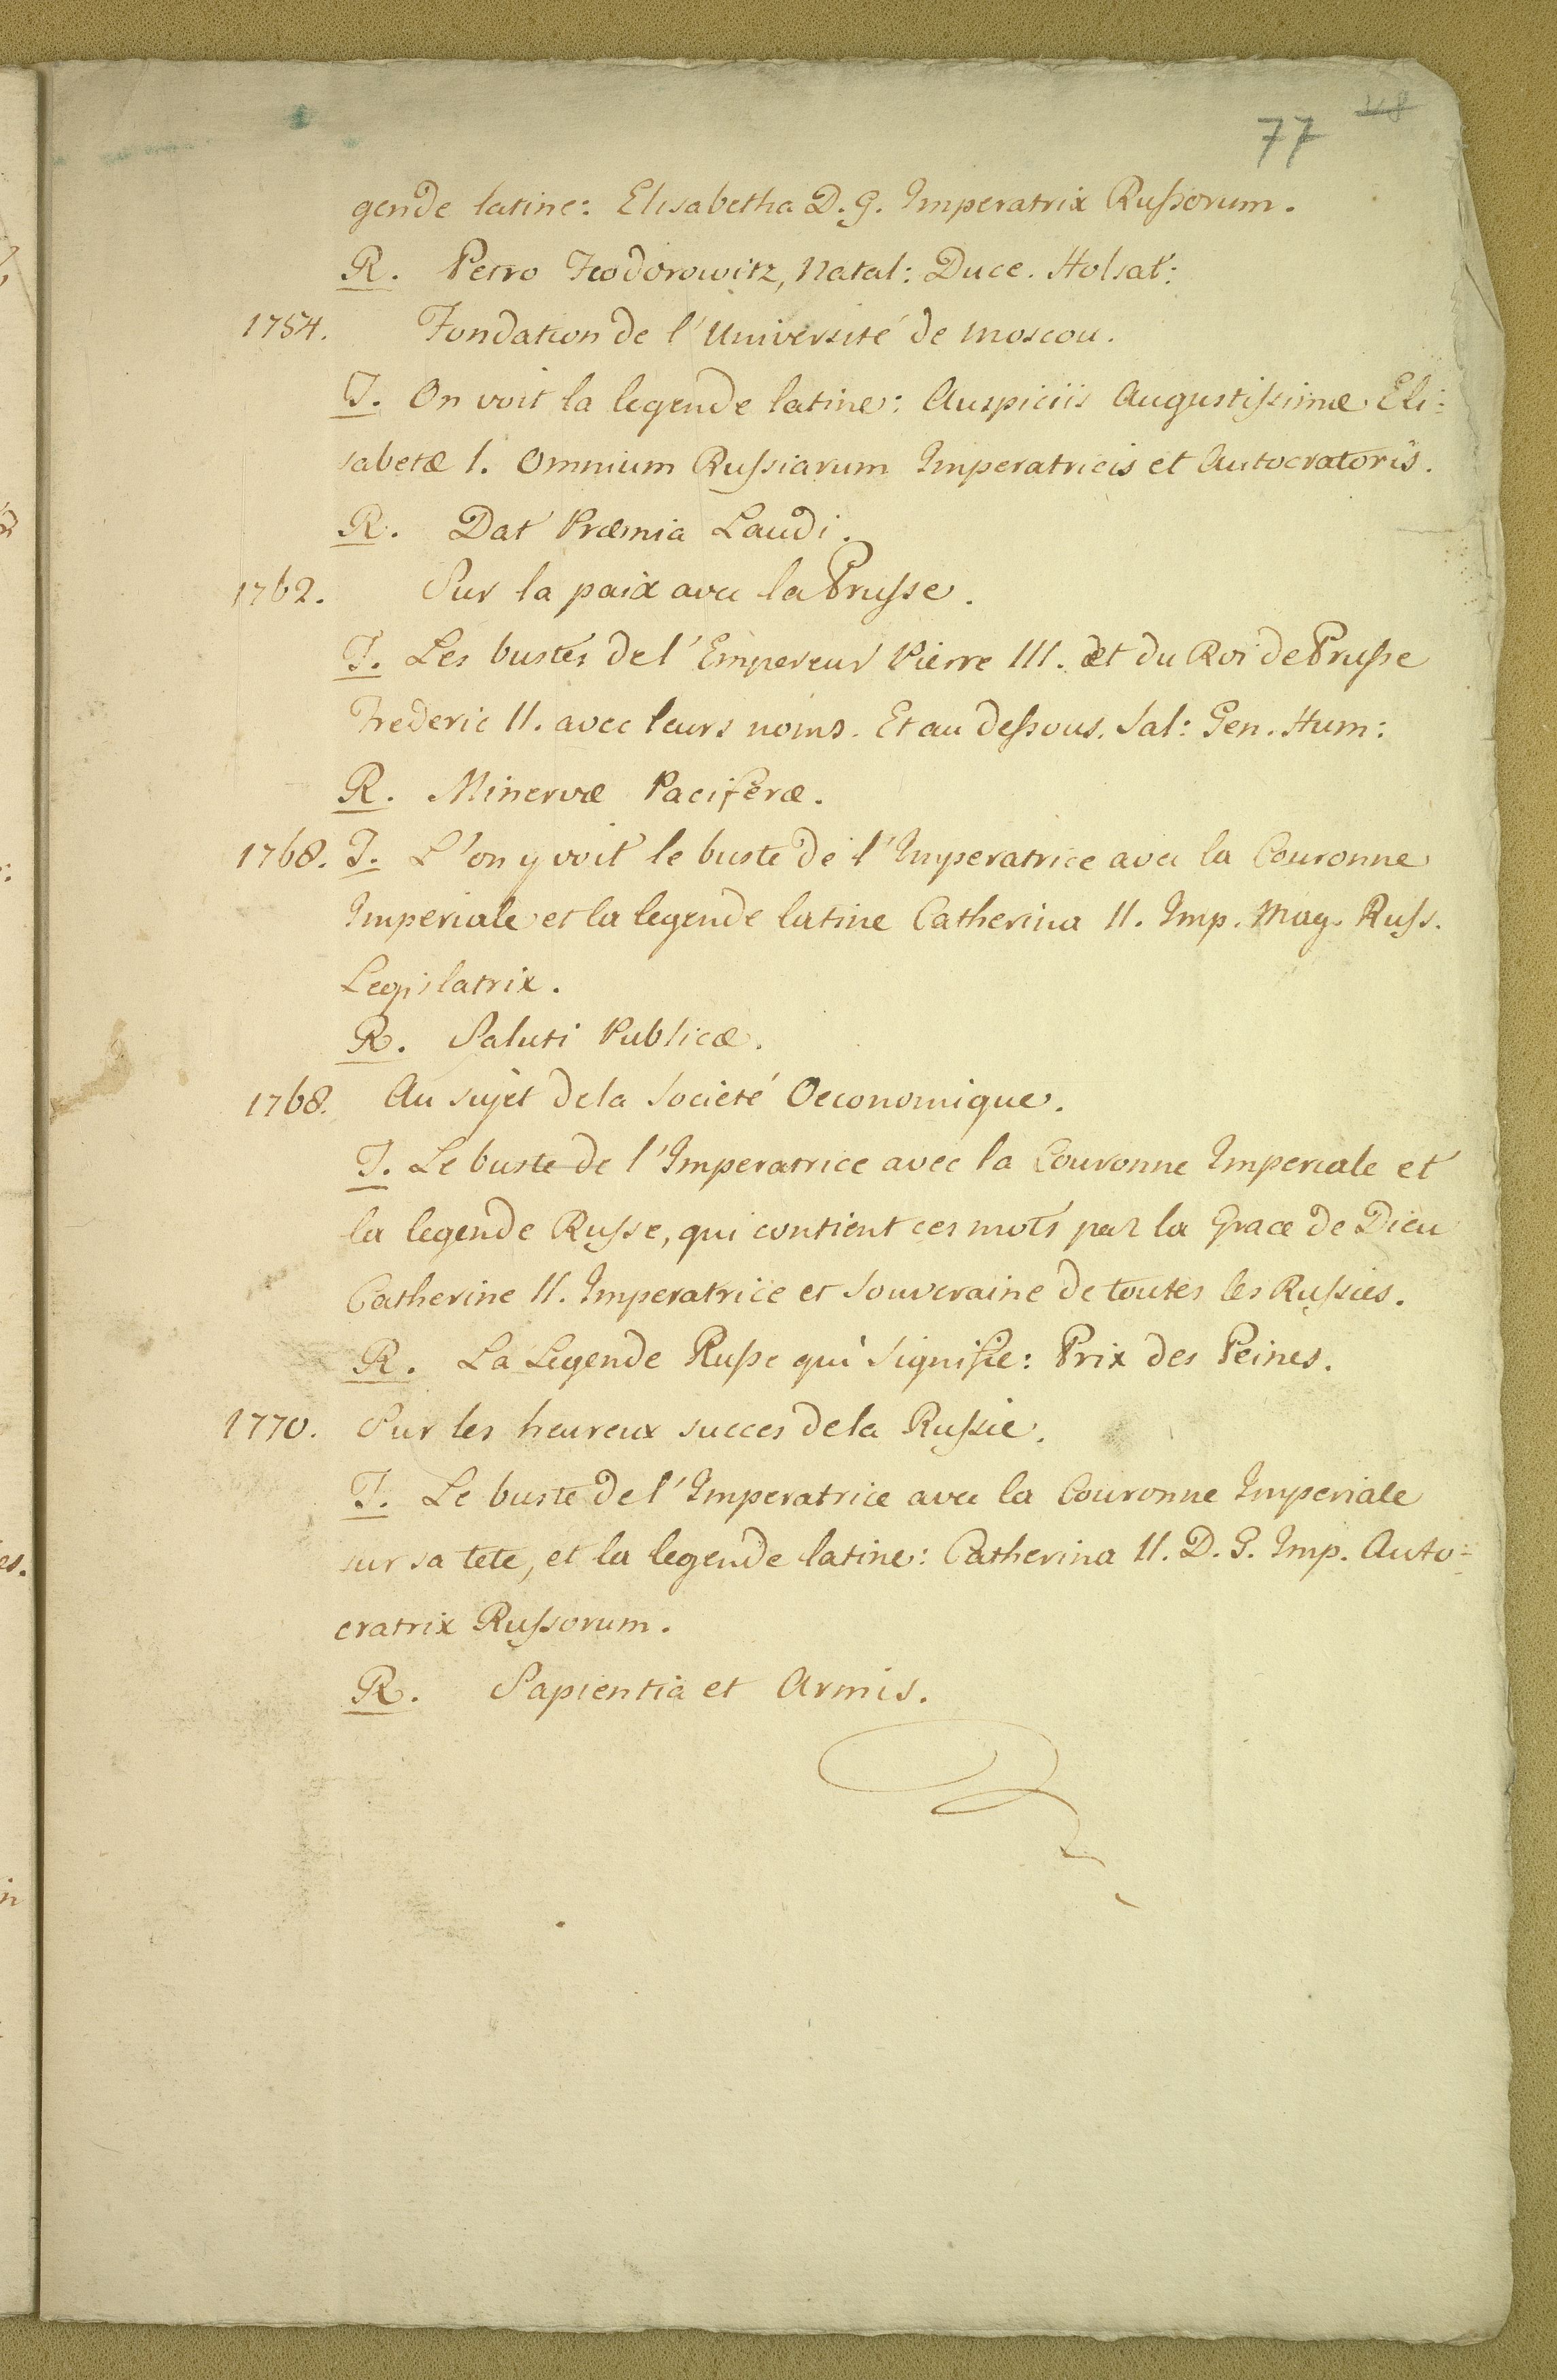 77
gende latine: Elisabetha D. G. Imperatrix Russorum.
R. Petro Feodorowitz, Natal: Duce. Holsat:
1754. Fondation de l'Université de Moscou.
T. On voit la legende latine: Auspiciis Augustissimæ Eli=
sabetæ I. Omnium Russiarum Imperatricis et Autocratoris.
R. Dat Præmia Laudi.
1762. Sur la paix avec la Prusse.
T. Les bustes de l'Empereur Pierre III. et du Roi de Prusse
Frederic II. avec leurs noms. Et au dessous. Sal: Gen. Hum:
R. Minervæ Paciferæ.
1768. T. L'on y voit le buste de l'Imperatrice avec la Couronne
Imperiale et la legende latine Catherina II. Imp. Mag. Russ.
Legislatrix.
R. Saluti Publicæ.
1768. Au sujet de la Societé Oeconomique.
T. Le buste de l'Imperatrice avec la Couronne Imperiale et
la legende Russe, qui contient ces mots par la Grace de Dieu
Catherine II. Imperatrice et Souveraine de toutes les Russies.
R. La Legende Russe qui signifie: Prix des Peines.
1770. Sur les heureux succes de la Russie.
T. Le buste de l'Imperatrice avec la Couronne Imperiale
sur sa tete, et la legende latine: Catherina II. D. G. Imp. Auto=
cratrix Russorum.
R. Sapientia et Armis.